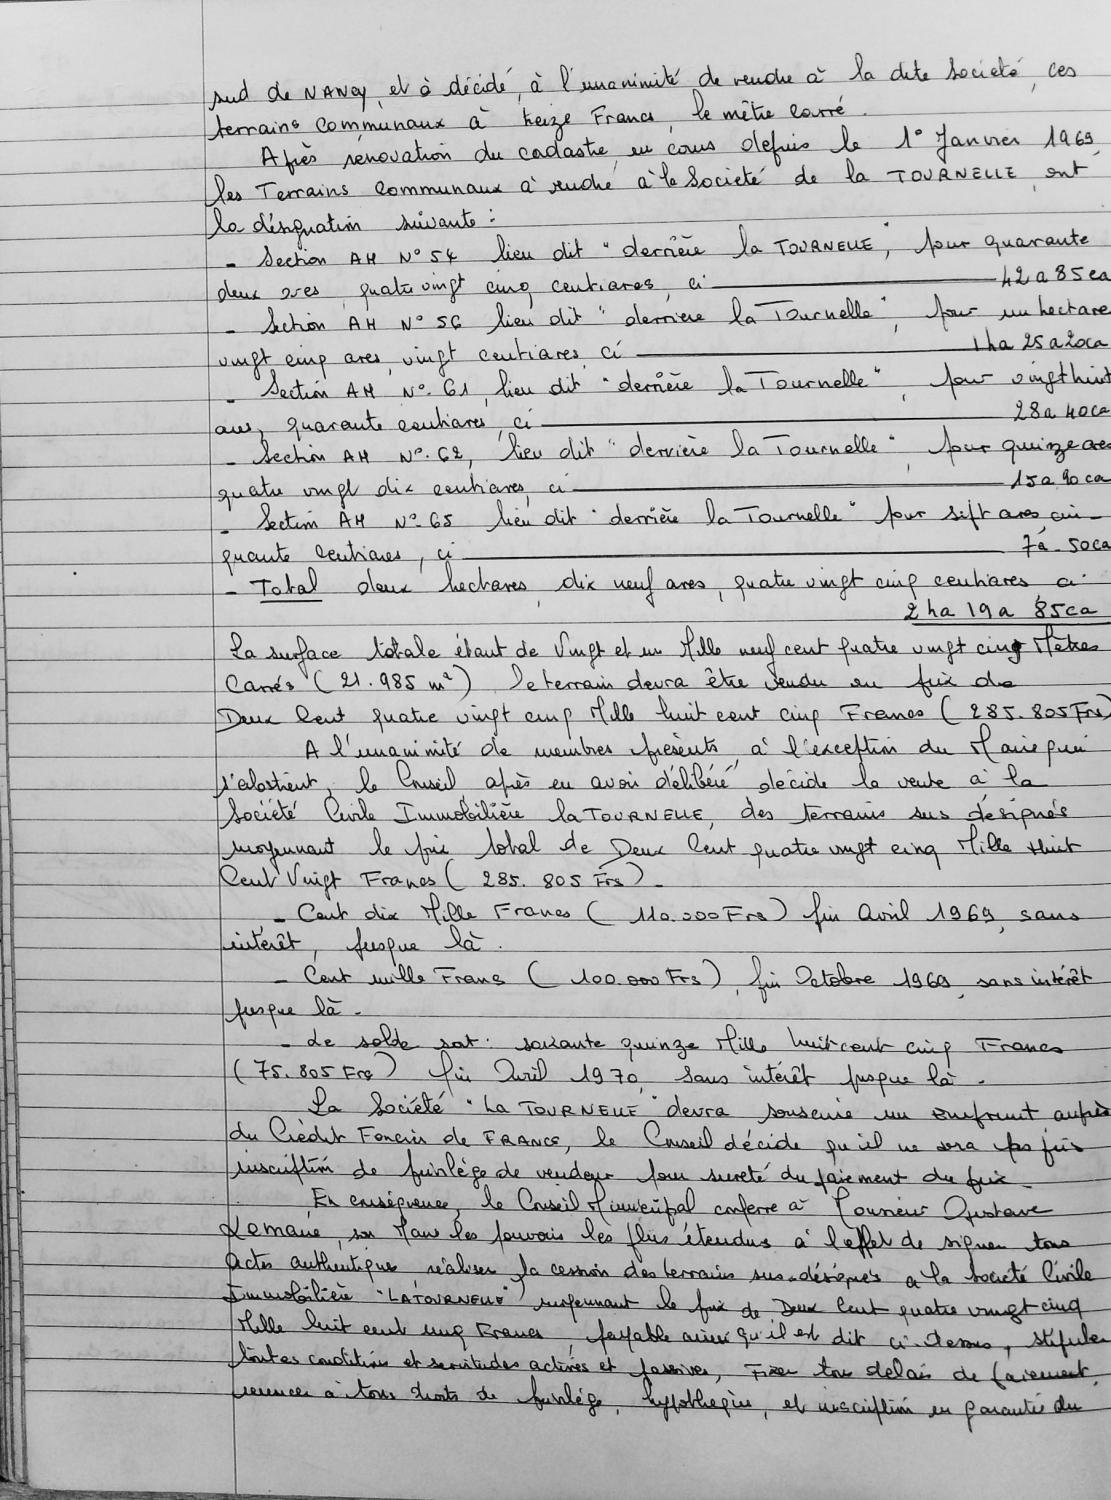 sud de NANCY, et à décidé, à l'unanimité de vendre à la dite Société, ces
terrains communaux à treize Francs, le mètre carré.
Après rénovation du cadastre, en cours depuis le 1° Janvier 1969,
les Terrains Communaux à vendre à la Société de la TOURNELLE, ont
la désignation suivante :
- Section AH N° 54 lieu dit "derrière la TOURNELLE", pour quarante
deux ares, quatre vingt cinq centiares, ci 42a 85ca
- Section AH N° 56 lieu dit "derriere la Tournelle", pour un hectare
vingt cinq ares, vingt centiares, ci 1ha 25a 20ca
- Section AH N°. 61, lieu dit "derrière la Tournelle", pour vingt huit
ares, quarante centiares, ci 28a 40ca
- Section AH N°. 62, lieu dit "derrière la Tournelle", pour quinze ares
quatre vingt dix centiares, ci 15a 90ca
- Section AH N°. 65 lieu dit "derrière la Tournelle" pour sept ares, cin-
quante centiares, ci 7a. 50ca
- Total deux hectares, dix neuf ares, quatre vingt cinq centiares ci
2ha 19a 85ca
La surface totale étant de Vingt et un Mille neuf cent quatre vingt cinq Mètres
Carrés (21.985 m²) le terrain devra être vendu au prix de
Deux Cent quatre vingt cinq Mille huit cent cinq Francs (285.805 Frs)
A l'unanimité de membres présents, à l'exception du Maire qui
s'abstient, le Conseil, après en avoir délibéré, décide la vente à la
Société Civile Immobilière la TOURNELLE, des terrains sus désignés
moyennant le prix total de Deux Cent quatre vingt cinq Mille Huit
Cent Vingt Francs (285.805 Frs).
- Cent dix Mille Francs (110.000 Frs) fin Avril 1969, sans
intérêt, jusque là.
- Cent mille Francs (100.000 Frs), fin Octobre 1969, sans intérêt
jusque là.
- Le solde soit: soixante quinze Mille huit cent cinq Francs
(75.805 Frs) fin Avril 1970, sans intérêt jusque là.
La Société "La TOURNELLE" devra souscrire un emprunt auprès
du Crédit Foncier de FRANCE, le Conseil décide qu'il ne sera pas pris
inscription de privilège de vendeur pour sureté du paiement du prix.
En conséquence, le Conseil Municipal confère à Monsieur Gustave
son Maire les pouvoirs les plus étendus à l'effet de signer tous
Actes authentiques réaliser la cession des terrains sus-désignés à la Société Civile
Immobilière "LA TOURNELLE" moyennant le prix de Deux Cent quatre vingt cinq
Mille huit cent cinq Francs, payable ainsi qu'il est dit ci-dessus, stipuler
toutes conditions et servitudes actives et passives, Fixer tous délais de paiement,
renoncer à tous droits de privilège, hypothèque, et inscription en garantie du